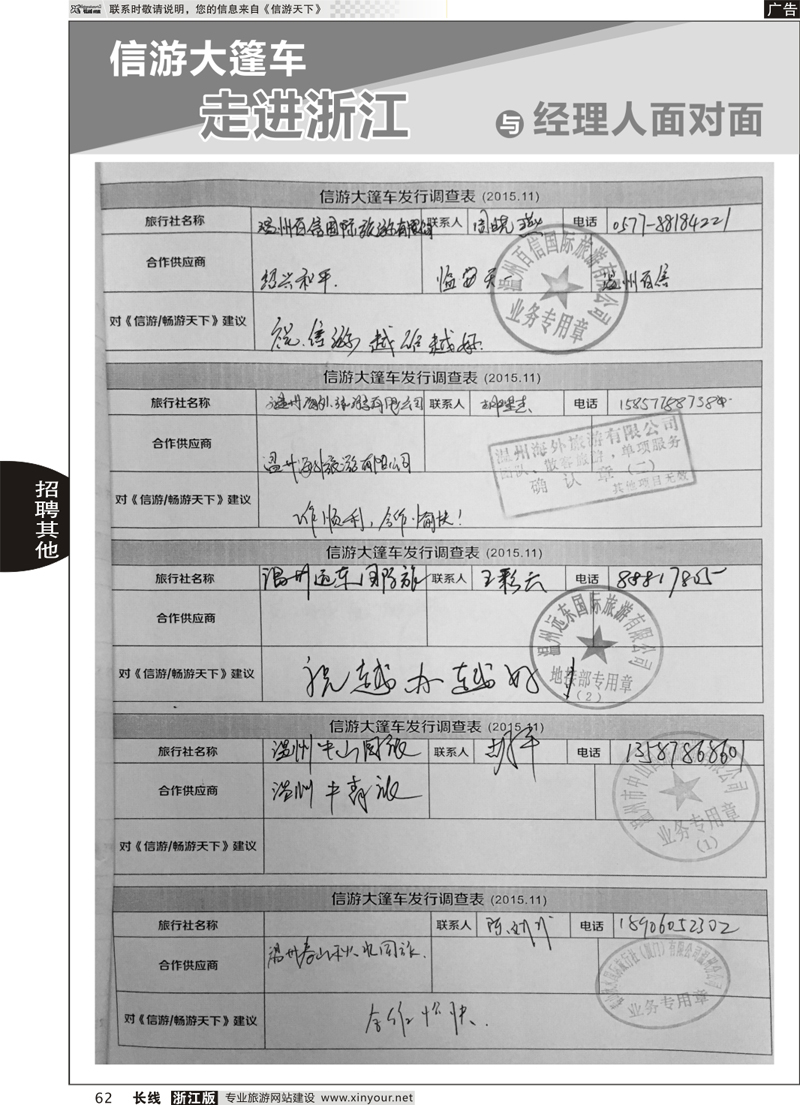 联系时敬请说明，您的信息来自《信游天下》
广告
信游大篷车
走进浙江 与 经理人面对面
信游大篷车发行调查表 (2015.11)
旅行社名称 温州百信国际旅游有限公司 联系人 电话 0577-88184221
合作供应商 绍兴和平 温州百信
温州百信国际旅游有限公司
业务专用章
对《信游/畅游天下》建议 祝信游越办越好.
信游大篷车发行调查表 (2015.11)
旅行社名称 温州海外旅游有限公司 联系人 电话
合作供应商 温州海外旅游有限公司
温州海外旅游有限公司
团队、散客旅游、单项服务
确认章(二)
其他项目无效
对《信游/畅游天下》建议 工作顺利，合作愉快！
信游大篷车发行调查表 (2015.11)
旅行社名称 温州远东国际旅 联系人 王彩云 电话 88817805
合作供应商
温州远东国际旅游有限公司
地接部专用章
(2)
对《信游/畅游天下》建议 祝越办越好！
信游大篷车发行调查表 (2015.11)
旅行社名称 温州中山国旅 联系人 胡平 电话 13587868601
合作供应商 温州中青旅
业务专用章
(1)
对《信游/畅游天下》建议
信游大篷车发行调查表 (2015.11)
旅行社名称 联系人 电话 18906052302
合作供应商
业务专用章
对《信游/畅游天下》建议 合作愉快.
招聘其他
62 长线 浙江版 专业旅游网站建设 www.xinyour.net